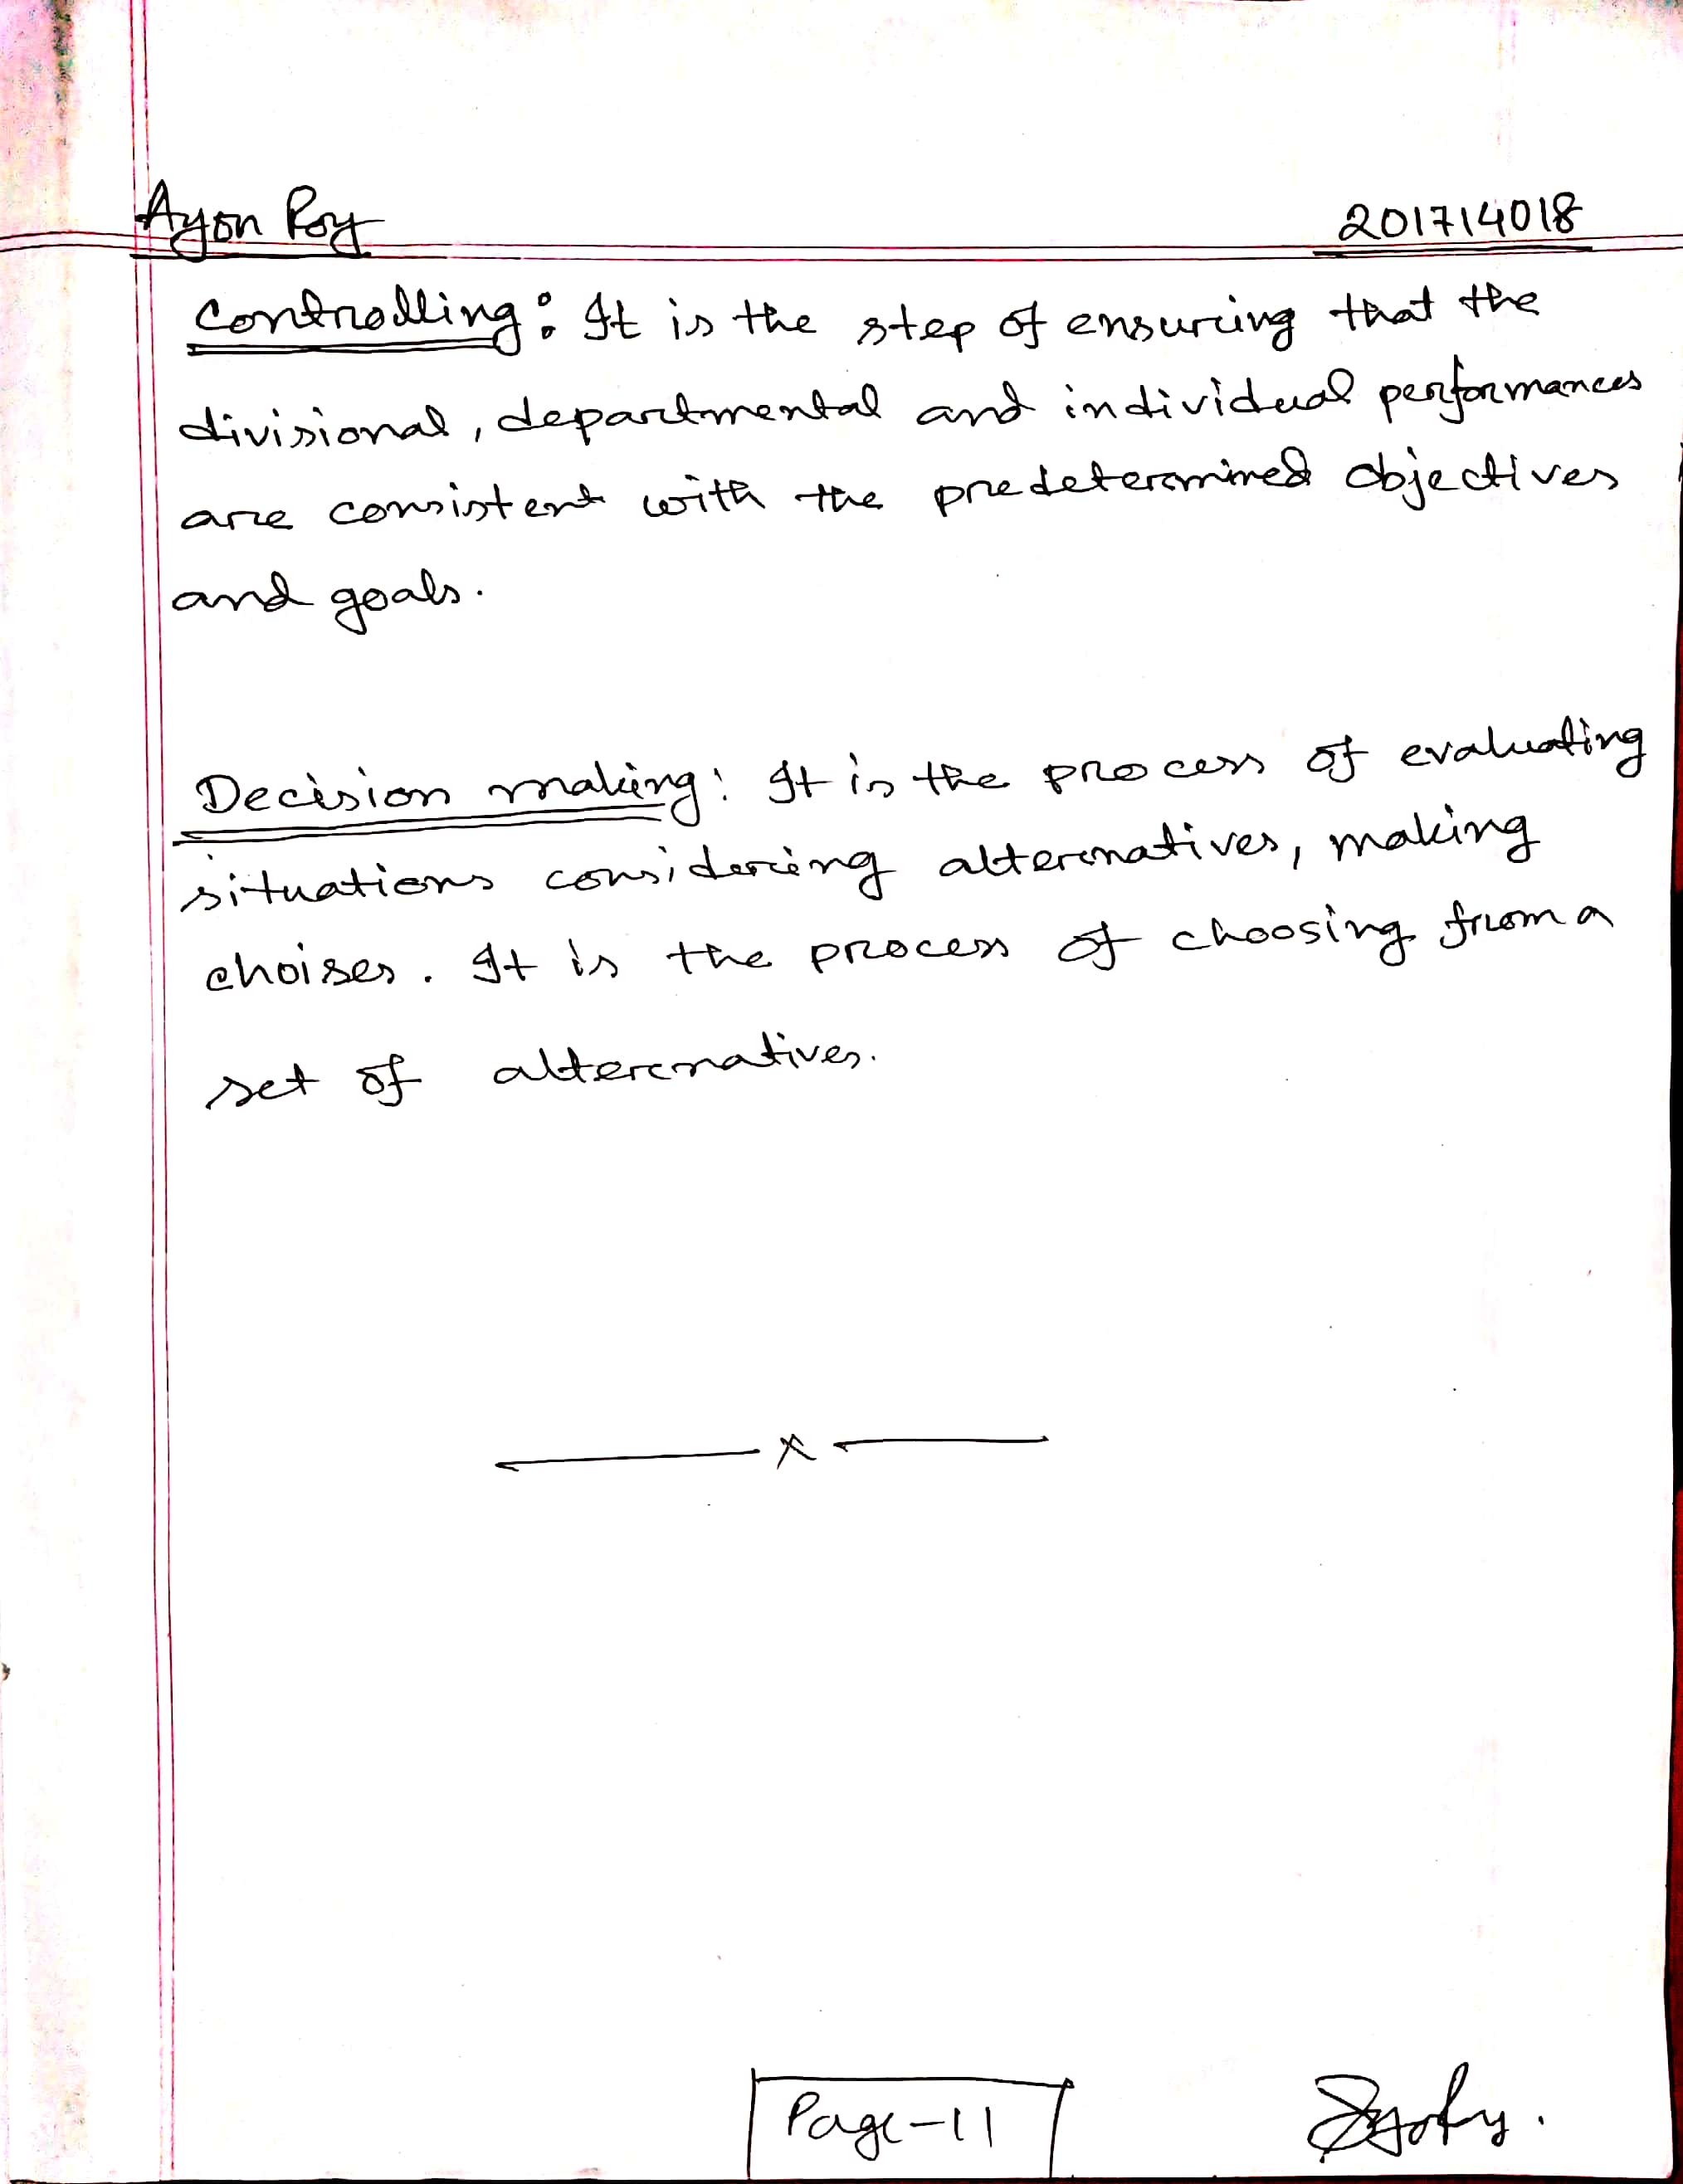 Ayon Roy 201714018
Controlling: It is the step of ensuring that the
divisional, departmental and individual performances
are consistent with the predetermined objectives
and goals.
Decision making: It is the process of evaluating
situations considering alternatives, making
choises. It is the process of choosing from a
set of alternatives.
x
Page-11